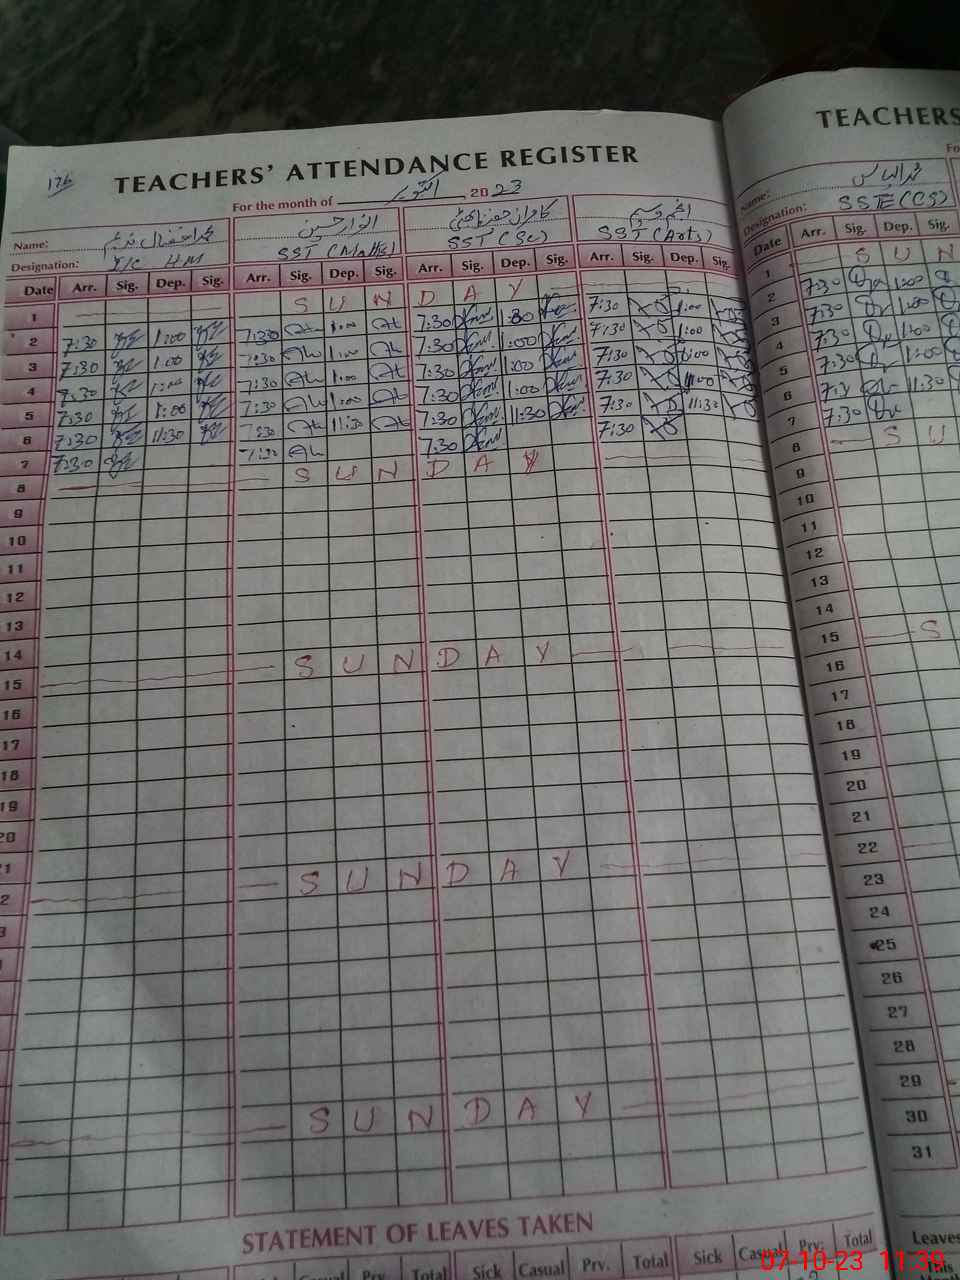 176
TEACHERS' ATTENDANCE REGISTER
For the month of اکتوبر 2023
Name: انوار حسین
Designation: I/C HM SST (Maths) SST (Sc) SST (Arts)
Date Arr. Sig. Dep. Sig. Arr. Sig. Dep. Sig. Arr. Sig. Dep. Sig. Arr. Sig. Dep. Sig.
1 S U N D A Y
2 7:30 1:00 7:30 1:00 7:30 1:00 7:30 1:00
3 7:30 1:00 7:30 1:00 7:30 1:00 7:30 1:00
4 7:30 1:00 7:30 1:00 7:30 1:00 7:30 1:00
5 7:30 1:00 7:30 1:00 7:30 1:00 7:30 1:00
6 7:30 11:30 7:30 11:30 7:30 11:30 7:30 11:30
7 7:30 7:30 7:30 7:30
8 S U N D A Y
9
10
11
12
13
14
15 S U N D A Y
16
17
18
19
20
1
2 S U N D A Y
3
S U N D A Y
STATEMENT OF LEAVES TAKEN
Casual Prv. Total Sick Casual Prv. Total Sick Casual Prv. Total
TEACHERS
Fo
Name: محمد الیاس
Designation: SSE (CS)
Date Arr. Sig. Dep. Sig.
1 S U N
2 7:30 1:00
3 7:30 1:00
4 7:30 1:00
5 7:30 1:00
6 11:30
7 7:30
8 S U
9
10
11
12
13
14
15 S
16
17
18
19
20
21
22
23
24
25
26
27
28
29
30
31
Leaves
This
07-10-23 11:39